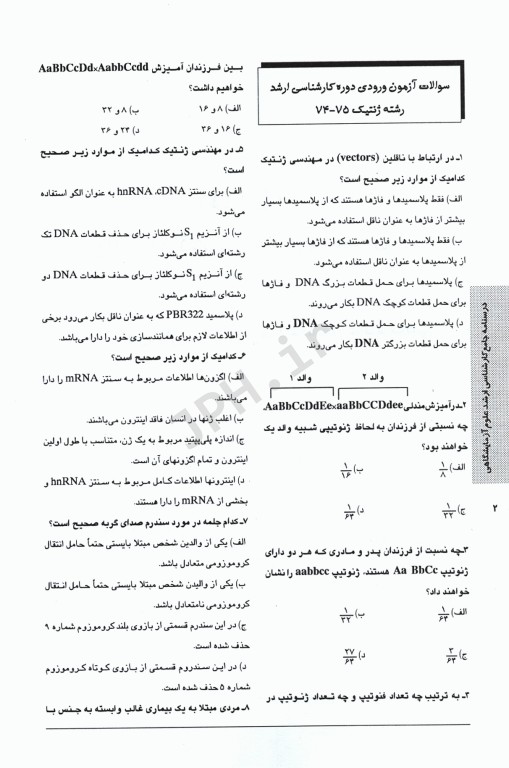 سوالات آزمون ورودی دوره کارشناسی ارشد
رشته ژنتیک ۷۵-۷۴
۱ـ در ارتباط با ناقلین (vectors) در مهندسی ژنتیک
کدامیک از موارد زیر صحیح است؟
الف) فقط پلاسمیدها و فاژها هستند که از پلاسمیدها بسیار
بیشتر از فاژها به عنوان ناقل استفاده می‌شود.
ب) فقط پلاسمیدها و فاژها هستند که از فاژها بسیار بیشتر
از پلاسمیدها به عنوان ناقل استفاده می‌شود.
ج) پلاسمیدها برای حمل قطعات بزرگ DNA و فاژها
برای حمل قطعات کوچک DNA بکار می‌روند.
د) پلاسمیدها برای حمل قطعات کوچک DNA و فاژها
برای حمل قطعات بزرگتر DNA بکار می‌روند.
والد ۲ والد ۱
۲ـ درآمیزش‌مندلی AaBbCcDdEe×aaBbCCDdee
چه نسبتی از فرزندان به لحاظ ژنوتیپی شبیه والد یک
خواهند بود؟
الف) ۱/۸ ب) ۱/۱۶
ج) ۱/۳۲ د) ۱/۶۴
۳ـ چه نسبت از فرزندان پدر و مادری که هر دو دارای
ژنوتیپ Aa BbCc هستند، ژنوتیپ aabbcc را نشان
خواهند داد؟
الف) ۱/۶۴ ب) ۱/۳۲
ج) ۳/۶۴ د) ۲۷/۶۴
۴ـ به ترتیب چه تعداد فنوتیپ و چه تعداد ژنوتیپ در
بین فرزندان آمیزش AaBbCcDd×AabbCcdd
خواهیم داشت؟
الف) ۸ و ۱۶ ب) ۸ و ۳۲
ج) ۱۶ و ۳۶ د) ۲۴ و ۳۶
۵ـ در مهندسی ژنتیک کدامیک از موارد زیر صحیح
است؟
الف) برای سنتز hnRNA ،cDNA به عنوان الگو استفاده
می‌شود.
ب) از آنزیم S1 نوکلئاز برای حذف قطعات DNA تک
رشته‌ای استفاده می‌شود.
ج) از آنزیم S1 نوکلئاز برای حذف قطعات DNA دو
رشته‌ای استفاده می‌شود.
د) پلاسمید PBR322 که به عنوان ناقل بکار می‌رود برخی
از اطلاعات لازم برای همانندسازی خود را دارا می‌باشد.
۶ـ کدامیک از موارد زیر صحیح است؟
الف) اگزون‌ها اطلاعات مربوط به سنتز mRNA را دارا
می‌باشند.
ب) اغلب ژنها در انسان فاقد اینترون می‌باشند.
ج) اندازه پلی‌پپتید مربوط به یک ژن، متناسب با طول اولین
اینترون و تمام اگزونهای آن است.
د) اینترونها اطلاعات کامل مربوط به سنتز hnRNA و
بخشی از mRNA را دارا هستند.
۷ـ کدام جلمه در مورد سندرم صدای گربه صحیح است؟
الف) یکی از والدین شخص مبتلا بایستی حتماً حامل انتقال
کروموزومی متعادل باشد.
ب) یکی از والیدن شخص مبتلا بایستی حتماً حامل انتقال
کروموزومی نامتعادل باشد.
ج) در این سندرم قسمتی از بازوی بلند کروموزوم شماره ۹
حذف شده است.
د) در این سندروم قسمتی از بازوی کوتاه کروموزوم
شماره ۵ حذف شده است.
۸ـ مردی مبتلا به یک بیماری غالب وابسته به جنس با
درسنامه جامع کارشناسی ارشد علوم آزمایشگاهی
۲